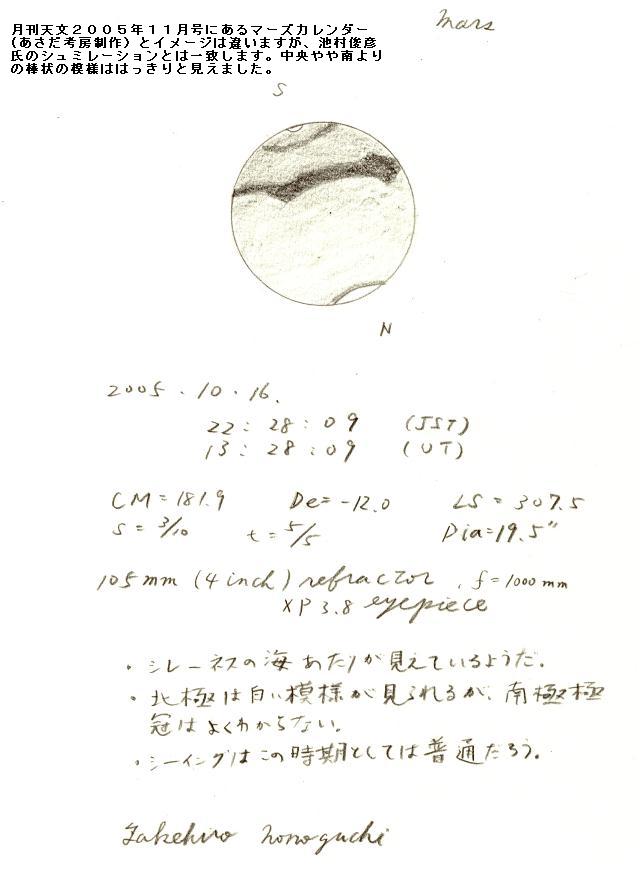 月刊天文２００５年１１月号にあるマーズカレンダー
（あさだ考房制作）とイメージは違いますが、池村俊彦
氏のシュミレーションとは一致します。中央やや南より
の棒状の模様ははっきりと見えました。
Mars
S
N
2005．10．16．
22：28：09 (JST)
13：28：09 (UT)
CM=181.9 De=-12.0 LS=307.5
S=3/10 t=5/5 Dia=19.5"
105mm (4 inch) refractor, f=1000mm
XP 3.8 eyepiece
・シレーネスの海あたりが見えているようだ．
・北極は白い模様が見られるが、南極極
冠はよくわからない。
・シーイングはこの時期としては普通だろう。
Takehiro Nonoguchi